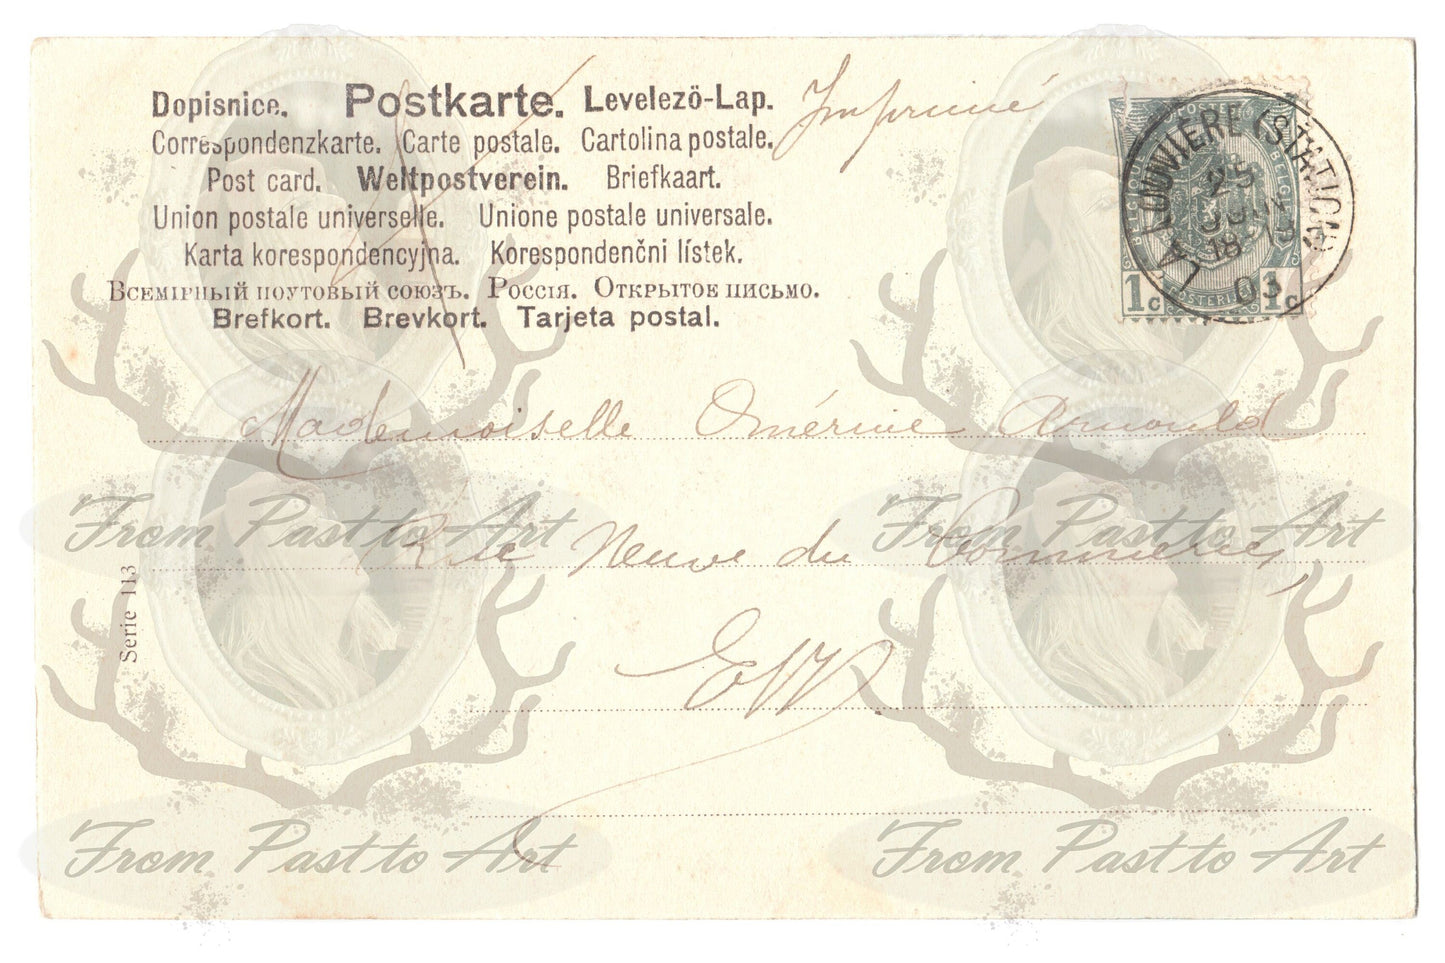 Dopisnice. Postkarte. Levelezö-Lap.
Correspondenzkarte. Carte postale. Cartolina postale.
Post card. Weltpostverein. Briefkaart.
Union postale universelle. Unione postale universale.
Karta korespondencyjna. Korespondenčni lístek.
Всемірный поутовый союзъ. Россія. Открытое письмо.
Brefkort. Brevkort. Tarjeta postal.
Imprimé
LA LOUVIÈRE (STATION)
25
JUIN
18-19
03
1c 1c
Mademoiselle Omérine Arnould
Rue Neuve du Commerce,
E/V
Serie 113
From Past to Art
From Past to Art
From Past to Art
From Past to Art